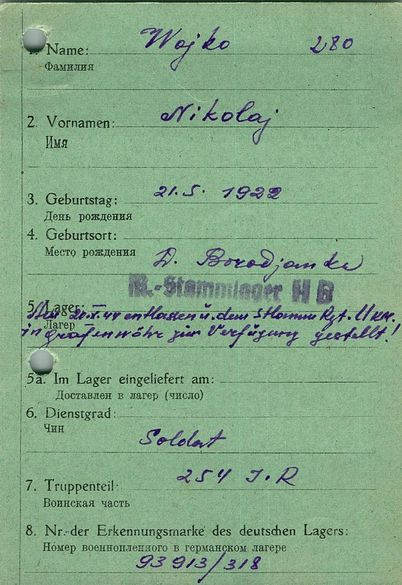 1. Name: Wojko 280
Фамилия
2. Vornamen: Nikolaj
Имя
3. Geburtstag: 21.5.1922
День рождения
4. Geburtsort:
Место рождения D. Borodjanka
M.-Stammlager
5. Lager:
entlassen u. dem
Лагер
in Grafenwöhr zur Verfügung gestellt!
5a. Im Lager eingeliefert am:
Доставлен в лагер (число)
6. Dienstgrad:
Чин
Soldat
7. Truppenteil: 254 J.R
Воинская часть
8. Nr. der Erkennungsmarke des deutschen Lagers:
Номер военнопленного в германском лагере
93913/318